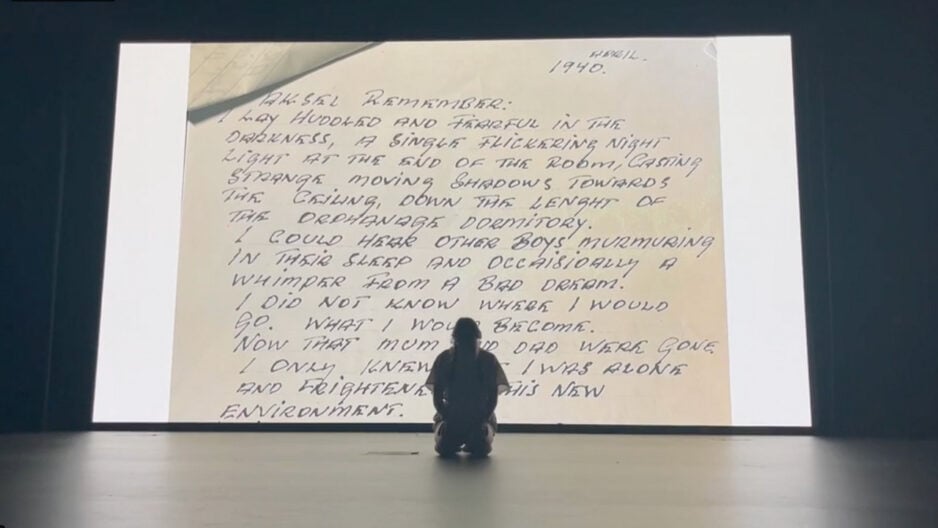 APRIL.
1940.
AKSEL REMEMBER:
I LAY HUDDLED AND FEARFUL IN THE
DARKNESS, A SINGLE FLICKERING NIGHT
LIGHT AT THE END OF THE ROOM, CASTING
STRANGE MOVING SHADOWS TOWARDS
THE CEILING, DOWN THE LENGHT OF
THE ORPHANAGE DORMITORY.
I COULD HEAR OTHER BOYS MURMURING
IN THEIR SLEEP AND OCCAISIOALLY A
WHIMPER FROM A BAD DREAM.
I DID NOT KNOW WHERE I WOULD
GO. WHAT I WOU BECOME.
NOW THAT MUM ND DAD WERE GONE
I ONLY KNEW T I WAS ALONE
AND FRIGHTENE HIS NEW
ENVIRONMENT.